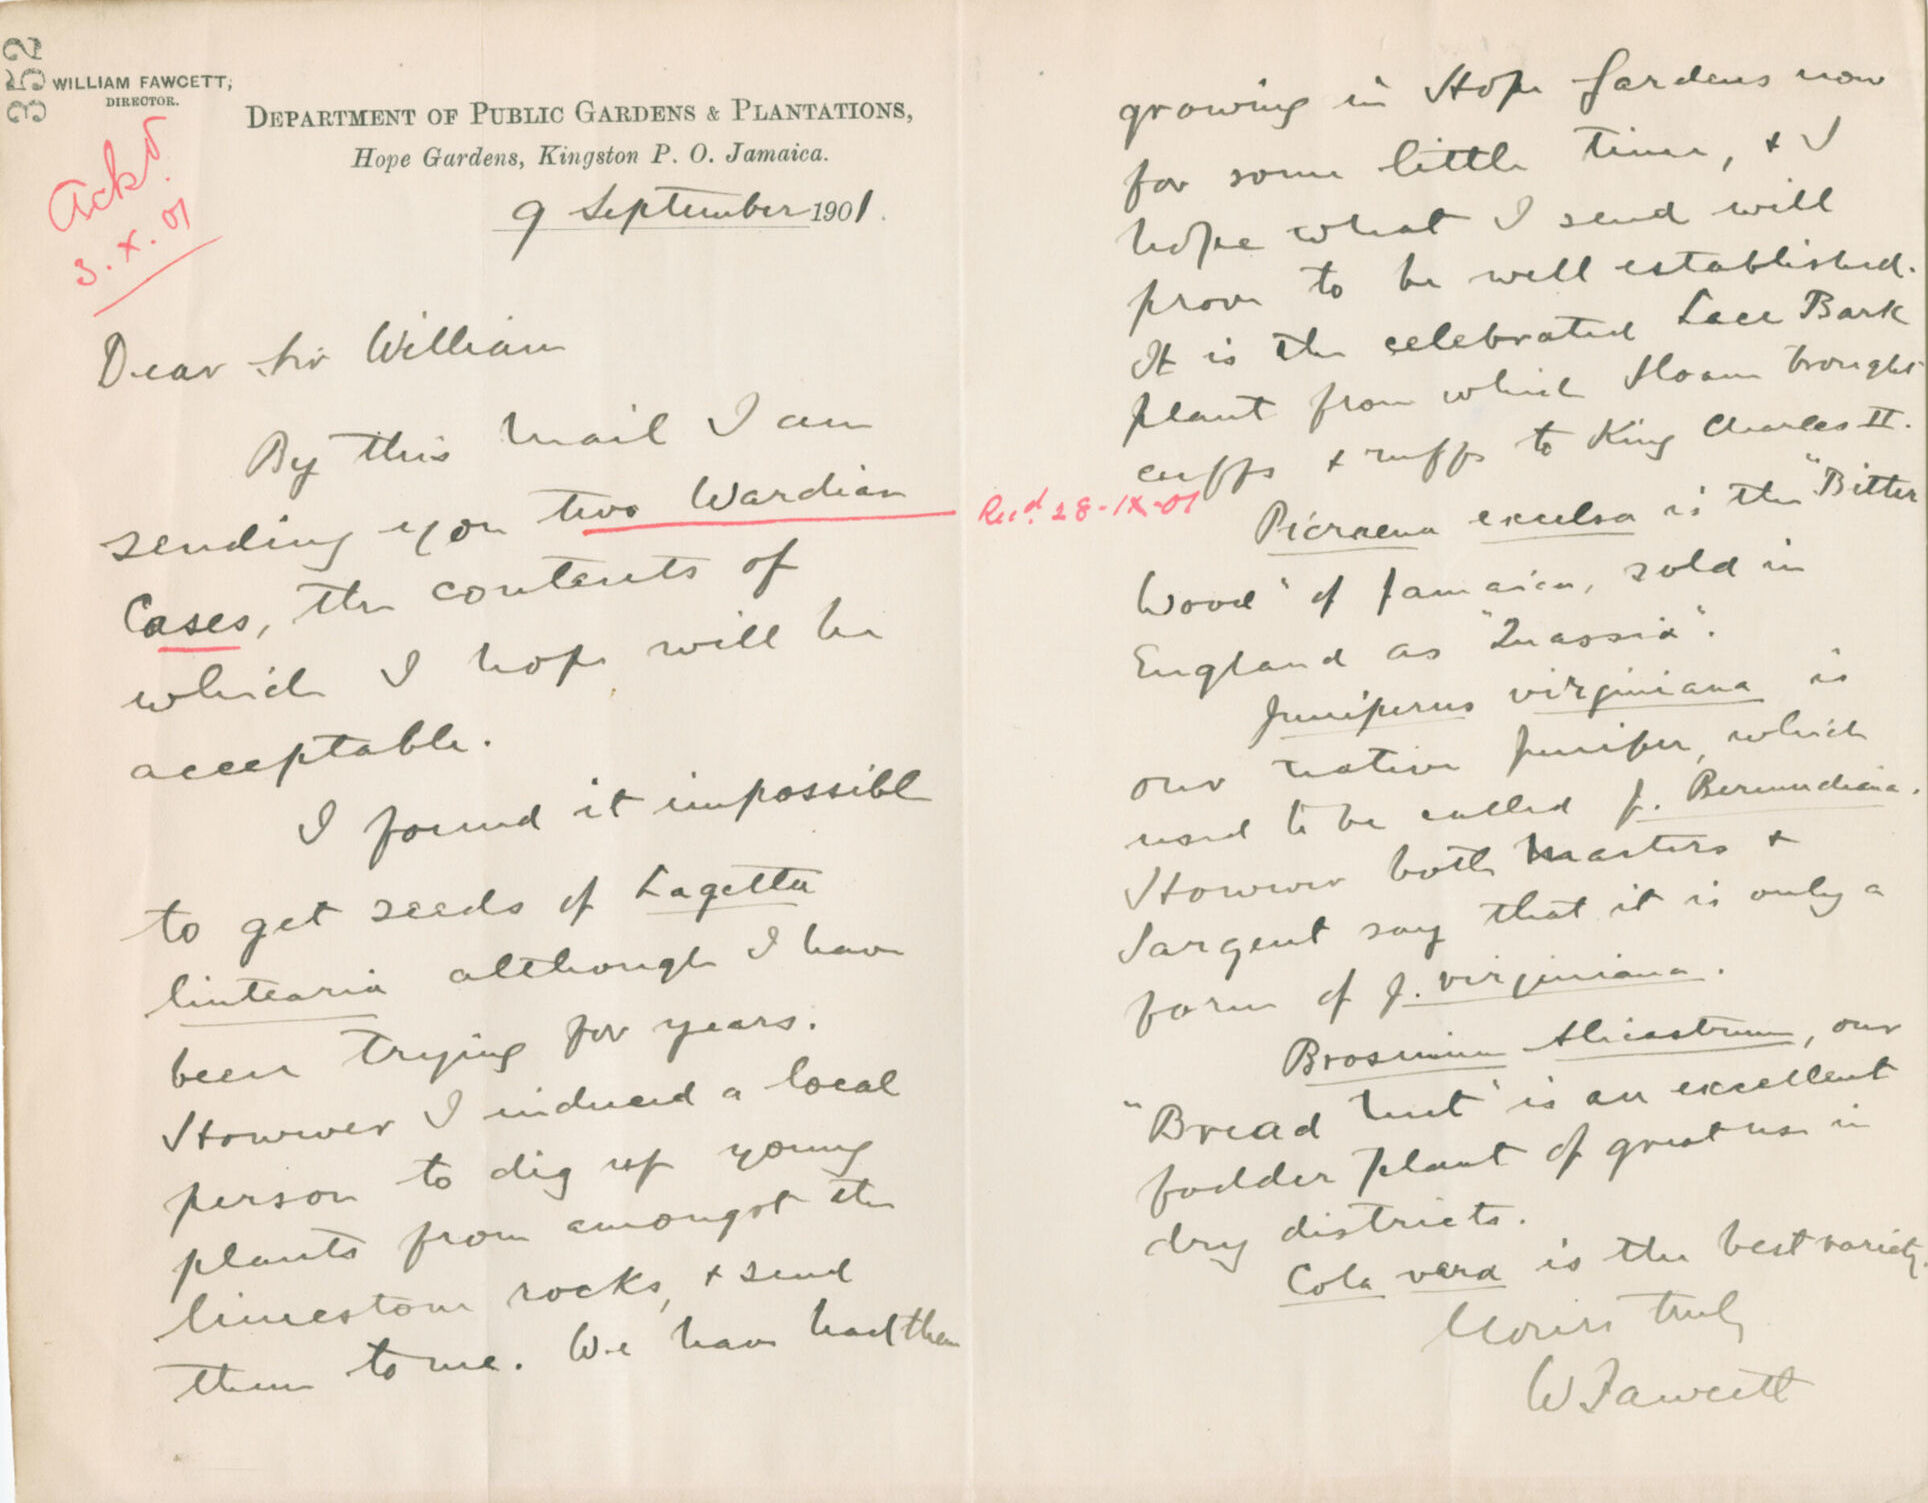 352
WILLIAM FAWCETT,
DIRECTOR.
DEPARTMENT OF PUBLIC GARDENS & PLANTATIONS,
Hope Gardens, Kingston P. O. Jamaica.
9 September 1901.
Ackd.
3.X.01
Dear Sir William
By this mail I am
sending you two Wardian
Cases, the contents of
which I hope will be
acceptable.
I found it impossible
to get seeds of Lagetta
lintearia although I have
been trying for years.
However I induced a local
person to dig up young
plants from amongst the
limestone rocks, & send
them to me. We have had them
growing in Hope Gardens now
for some little time, & I
hope what I send will
prove to be well established.
It is the celebrated Lace Bark
plant from which Sloane brought
cuffs & ruffs to King Charles II.
Recd. 28-IX-01
Picraena excelsa is the "Bitter
Wood" of Jamaica, sold in
England as "Quassia".
Juniperus virginiana is
our native Juniper, which
used to be called J. Bermudiana.
However both Masters &
Sargent say that it is only a
form of J. virginiana.
Brosimum Alicastrum, our
"Bread Nut" is an excellent
fodder plant of great use in
dry districts.
Cola vera is the best variety.
Yours truly
W Fawcett